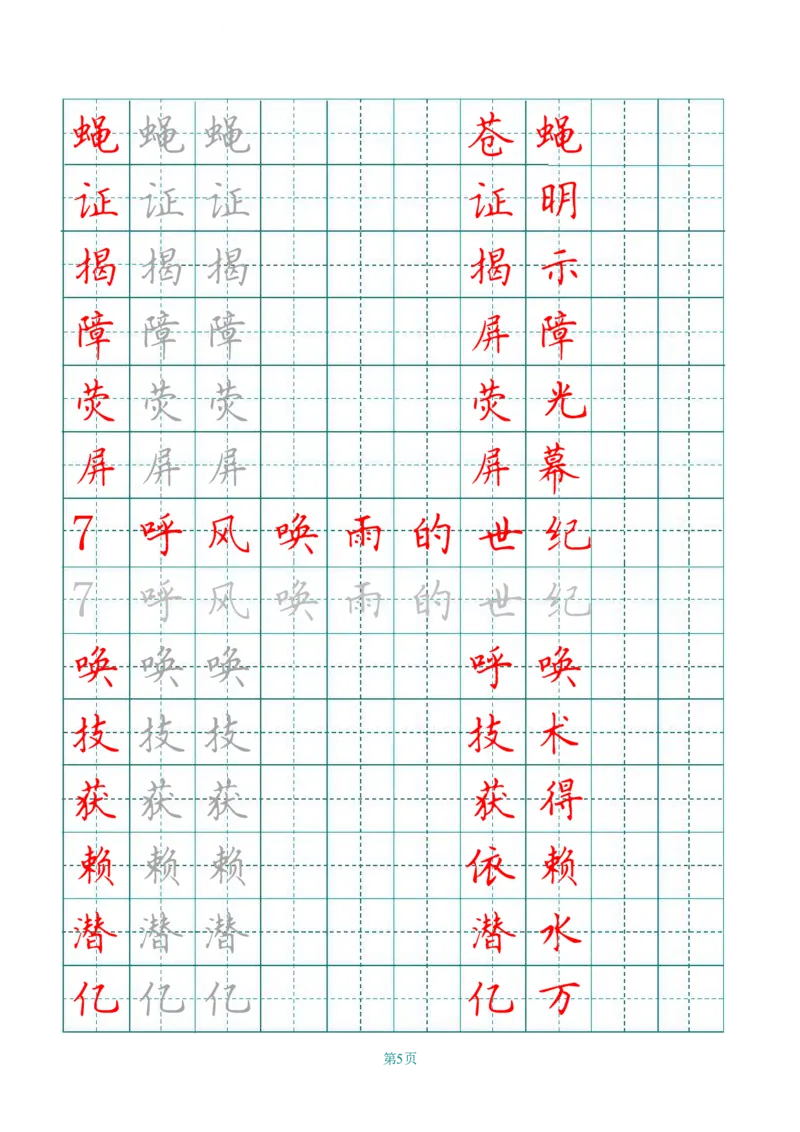 蝇 蝇 蝇 苍 蝇
证 证 证 证 明
揭 揭 揭 揭 示
障 障 障 屏 障
荧 荧 荧 荧 光
屏 屏 屏 屏 幕
7 呼 风 唤 雨 的 世 纪
7 呼 风 唤 雨 的 世 纪
唤 唤 唤 呼 唤
技 技 技 技 术
获 获 获 获 得
赖 赖 赖 依 赖
潜 潜 潜 潜 水
亿 亿 亿 亿 万
第5页